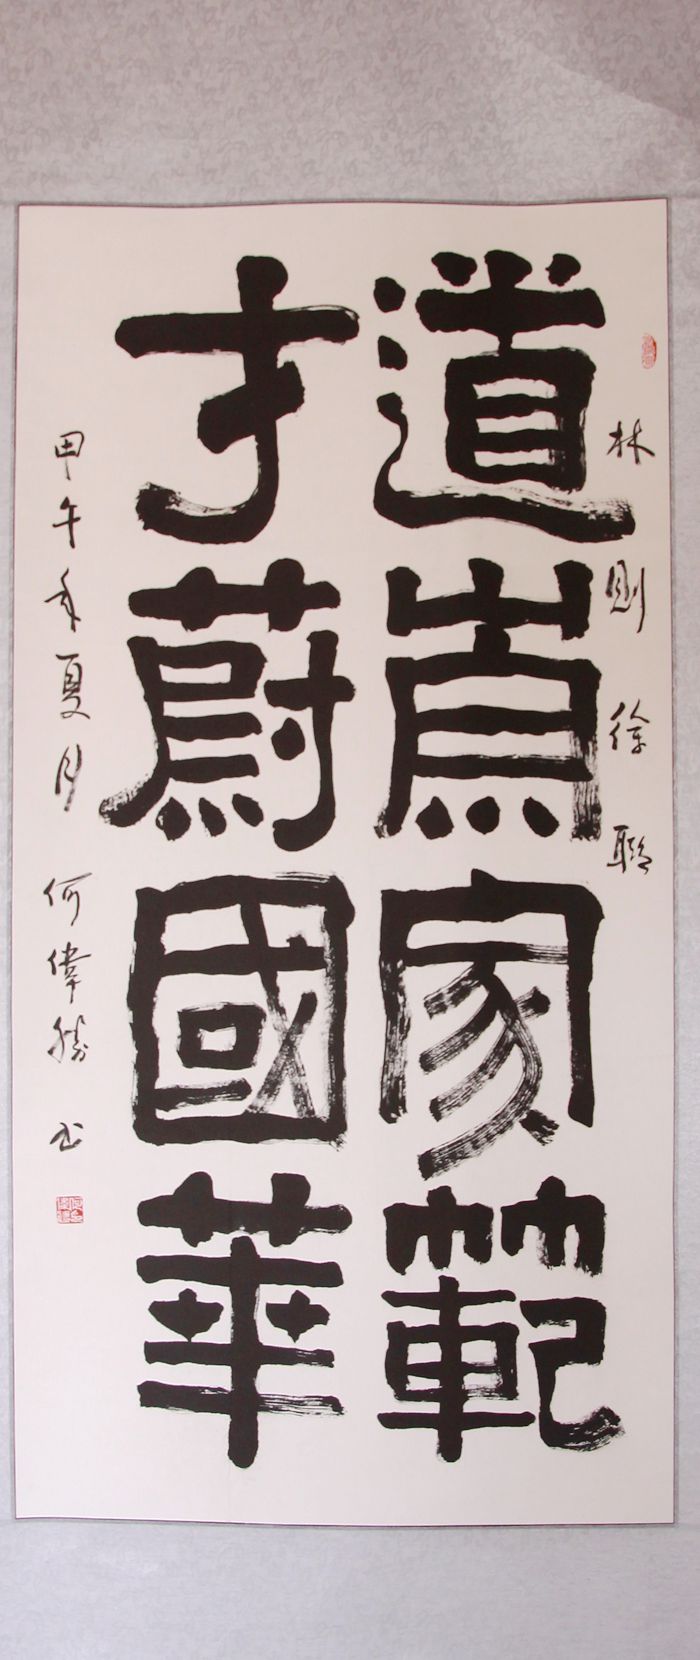 林則徐聯
道崇家範
才蔚國華
甲午年夏月何偉勝书